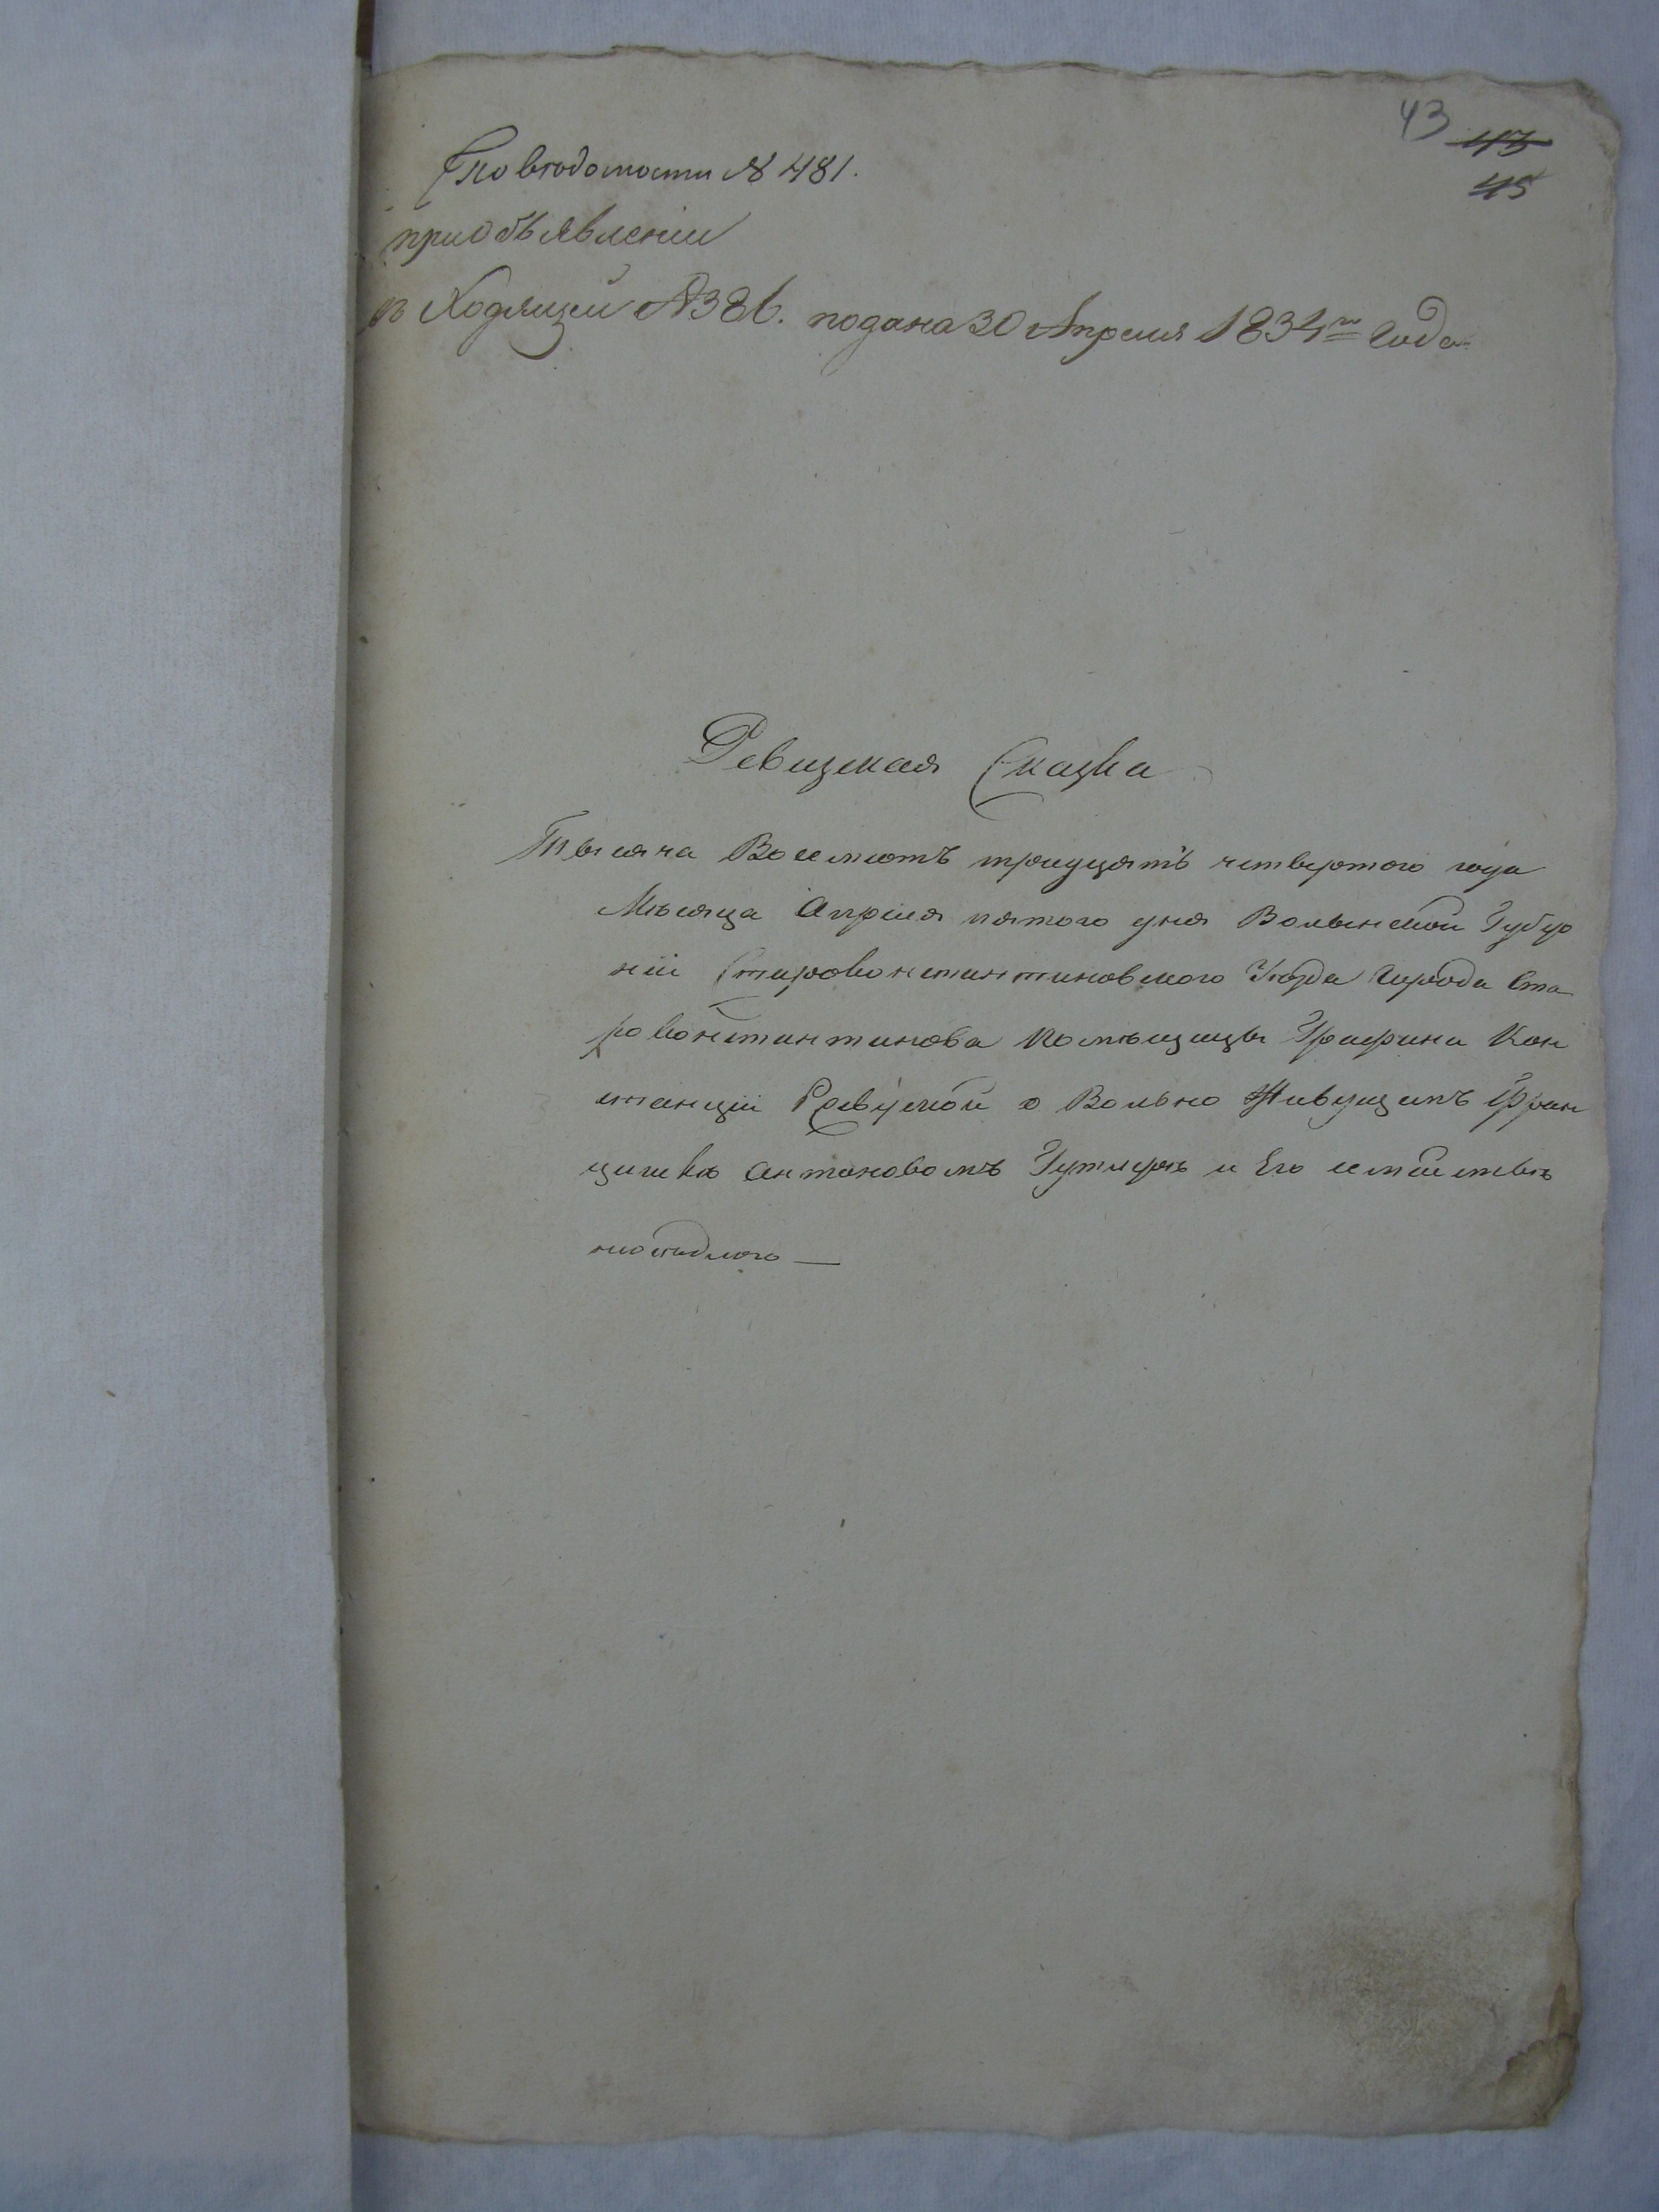 43 43
45
По вѣдомости № 481.
при объявленіи
въ Ходящей № 386. подана 30 Апреля 1834го Года
Ревизская Сказка
Тысяча Восемсотъ тридцять четвертого года
Мѣсяца Апреля пятого дня Волынской Губер
ніи Староконстантиновского Уѣзда Города Ста
роконстантинова помѣщицы Графини Кон
станціи Ржевуской о Вольно Живущемъ Фран
цишкѣ Антоновомъ Гутмерѣ и Его семействѣ